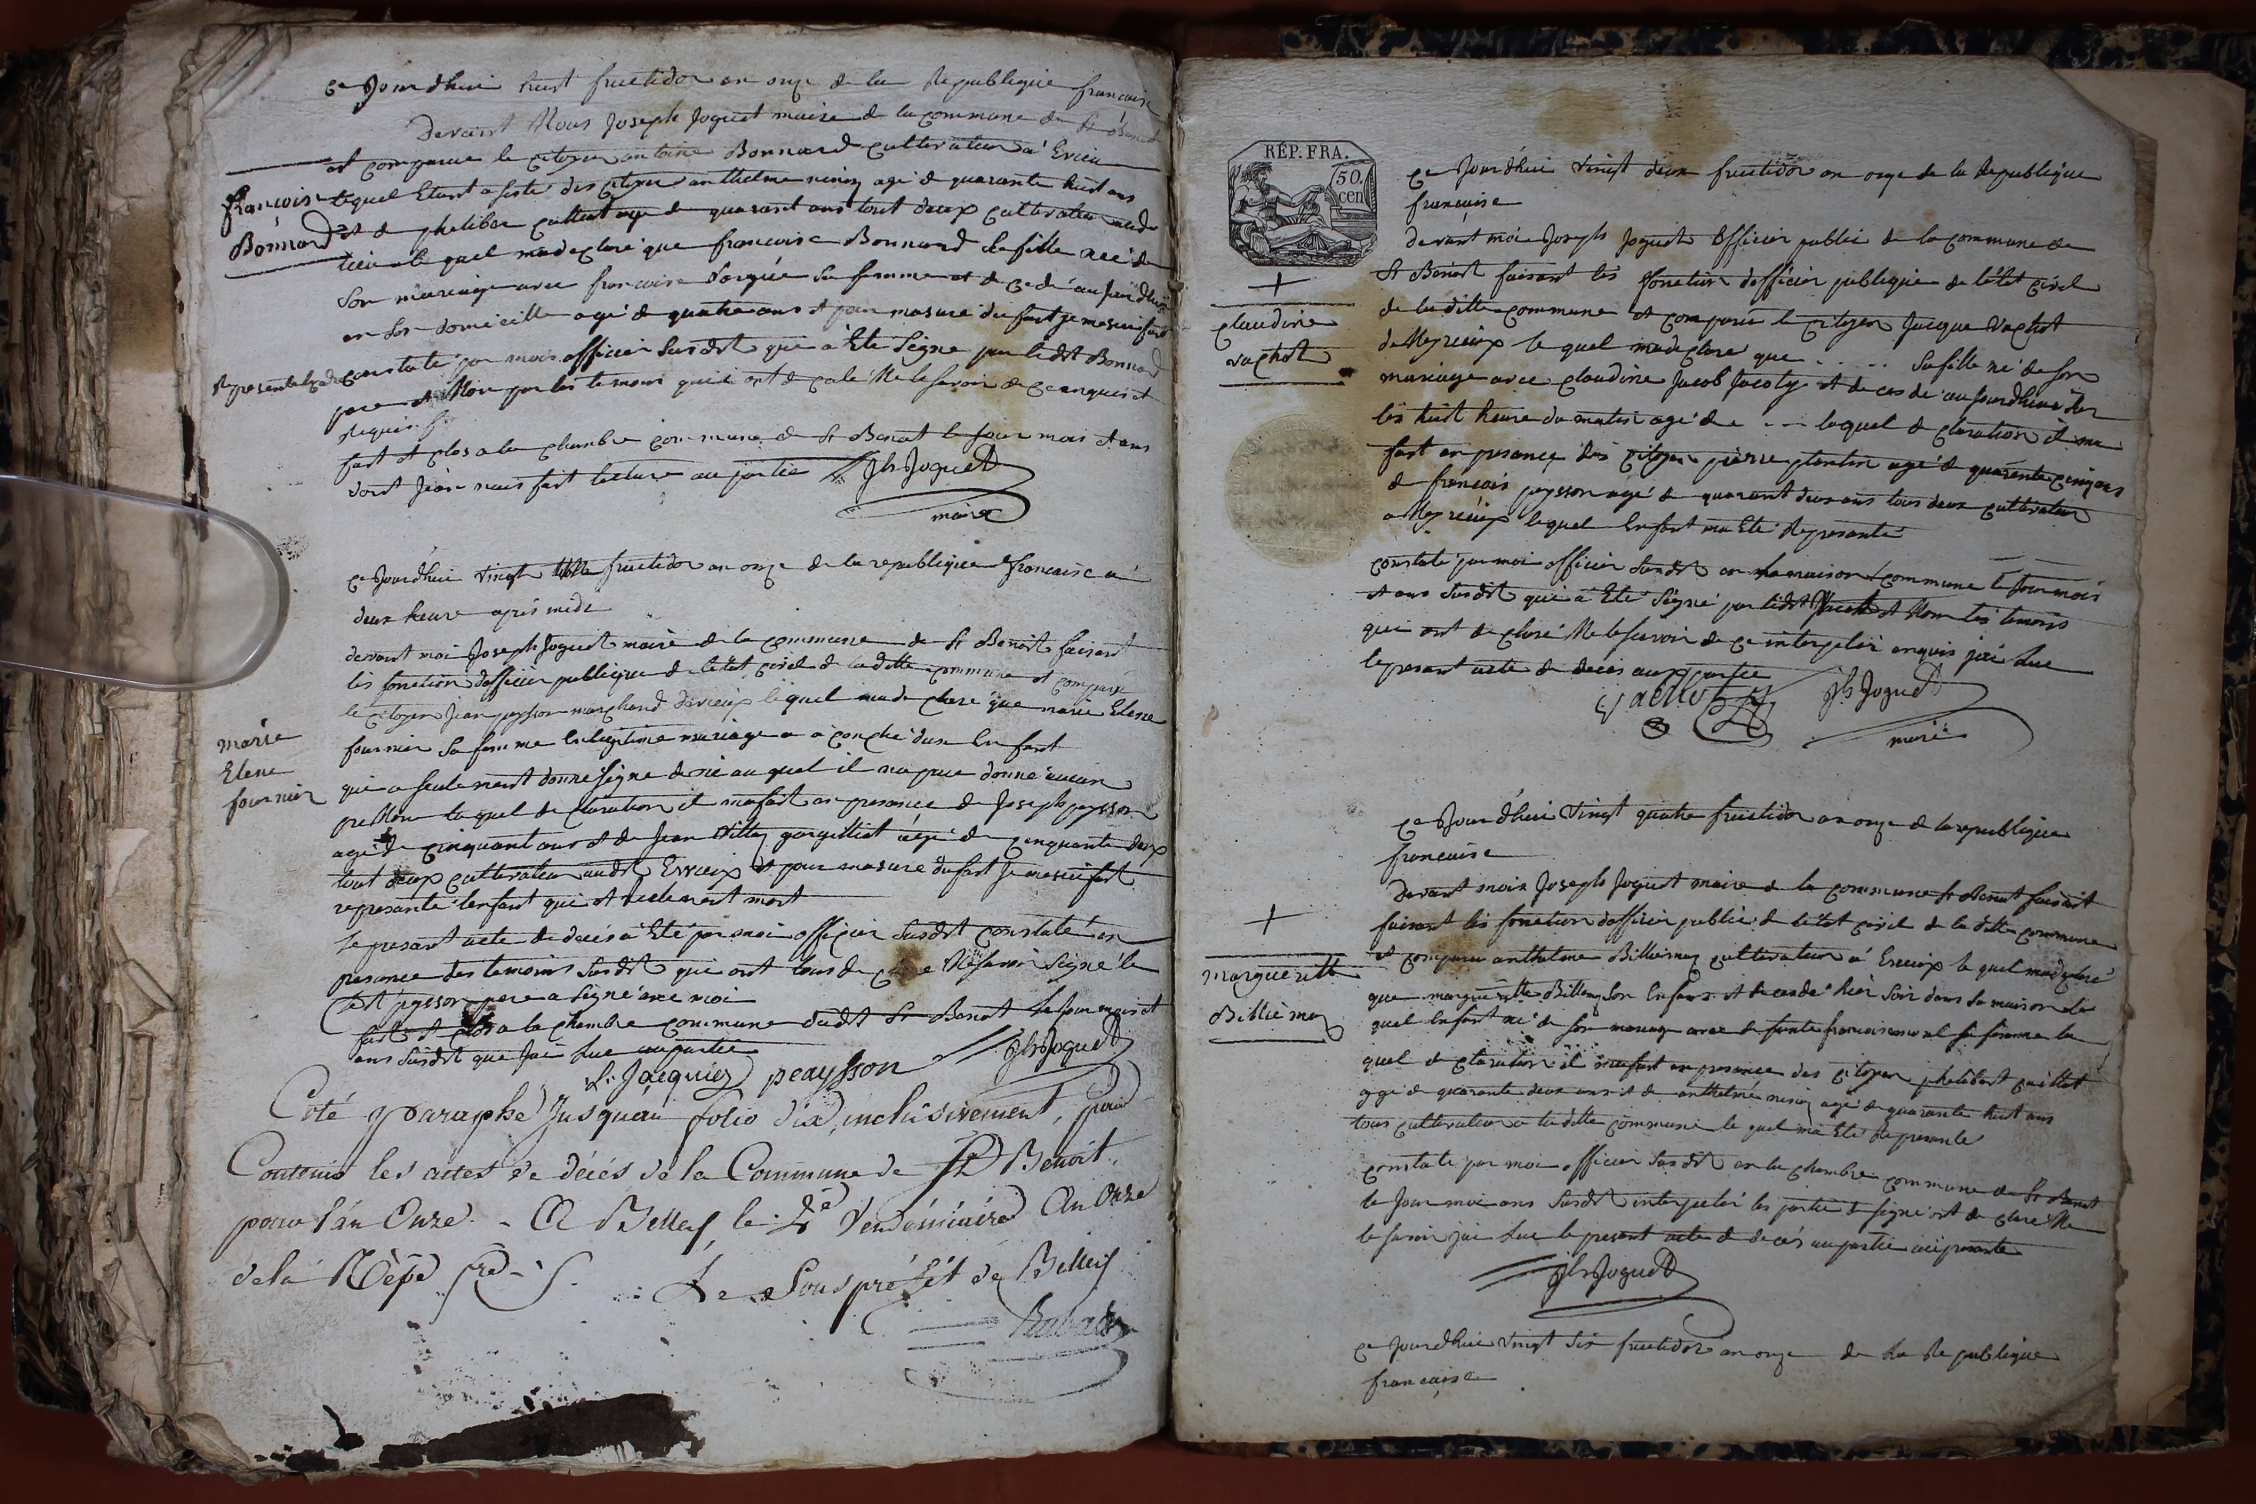 ce Jourdhui huit fructidor an onze de la Republique francaise
devant Nous Joseph Joguet maire de la commune de St Benoit
et comparue le citoyen antoine Bonnard cultivateur a Evieu
francoise
Bonnard
lequel Etant assisté des citoyen anthelme agé de quarante huit ans
et de pheliber agé de quarant ans tout deux cultivateur
lequel ma declaré que francoise Bonnard sa fille née de
son mariage avec francoise sa femme et decedé au jourdhuit
en son domicille agé de quatre ans et pour masuré du fait je me sui fait
Represente le cadavre
constaté par mois officier susdit qui a Eté Signé par ledit Bonnard
pere et Non par les temoins qui ont declaré Ne le savoir de ce enquis et
Requis
fait et clos a la chambre commune de St Benoit le jour mois et ans
dont Jean nais fait lecture au partie Jh Joguet
maire
ce Jourdhui vingt fructidor an onze de la republique francaise a
deux heure aprés midi
devant moi Joseph Joguet maire de la commune de St Benoit faisant
les fonction dofficier publique de letat civil de la ditte commune et comparu
le citoyen Jean peysson marchand dévieux lequel ma declaré que marie Elene
marie
Elene
fournier
fournier sa femme en legitime mariage a acouché dun Enfant
qui a seulement donné signe de vie au quel il na pue donné aucun
preNom laquel declaration il ma fait en presance de Joseph peysson
agé de cinquant ans et de Jean agé de cinquante deux
tout deux cultivateur audit Evieux et pour masuré du fait Je me sui fait
representé lenfant qui et reelement mort
Le present acte de decés a Eté par moi officier susdit constaté en
presance des temoins susdit qui ont tous declaré Ne savoir Signé le
Cit peysson pere a Signé avec moi
fait et clos a la chambre commune dudit St Benoit le jour mois et
ans susdit que Jai Lue au partie
L. Jacquier peaysson Jh Joguet
Coté & paraphé Jusqu'au folio dix, inclusivement, pour
Contenir les actes de décés de la Commune de St Benoit,
pour l'an Onze. - A Belley, le 2e Vendémiaire An Onze
de la Rép. fre. - Le Sous préfét de Belley
RÉP. FRA.
50.
cen
ce Jourdhui vingt deux fructidor an onze de la Republique
francaise
devant moi Joseph Joguet officier public de la commune de
St Benoit faisant les fonction dofficier publique de letat civil
de la ditte commune et comparu le citoyen Jacque vachot
claudine
vachot
lequel ma declaré que .. .. Sa fille né de son
mariage avec claudine Jacob et decedé au jourdhui
les huit heure du matin agé de .... laquel declaration il ma
fait en presance des citoyen pierre plantin agé de quarante cinq ans
de francois peysson agé de quarant deux ans tous deux cultivateur
lequel Enfant ma Eté Represanté
constaté par moi officier susdit en la maison commune le jour mois
et ans susdit qui a Eté Signé par ledit et Non les temoins
qui ont declaré Ne le scavoir de ce interpelé enquis jai Lue
le present acte de decés aux partie
Vachot Jh Joguet
maire
ce Jourdhui vingt quatre fructidor an onze de la republique
francaise
devant moi Joseph Joguet maire de la commune St Benoit faisant
faisant les fonction dofficier public de letat civil de la ditte commune
et comparu anthelme Billiemaz cultivateur a Evieux le quel ma declaré
margueritte
Billiemaz
que margueritte Billiemaz Son Enfant et decedé hier Soir dans sa maison le
quel Enfant né de son mariage avec sa femme la
quel declaration il ma fait en presance des citoyen phelibert caillat
agé de quarante deux ans et de anthelme agé de quarante huit ans
tous cultivateur a laditte commune le quel ma Eté Represanté
constaté par moi officier susdit en la chambre commune de St Benoit
le Jour moi ans susdit interpeler les partie de signé ont declaré Ne
le savoir jai Lue le present acte de decés au partie
Jh Joguet
ce Jourdhui vingt six fructidor an onze de La Republique
francaise